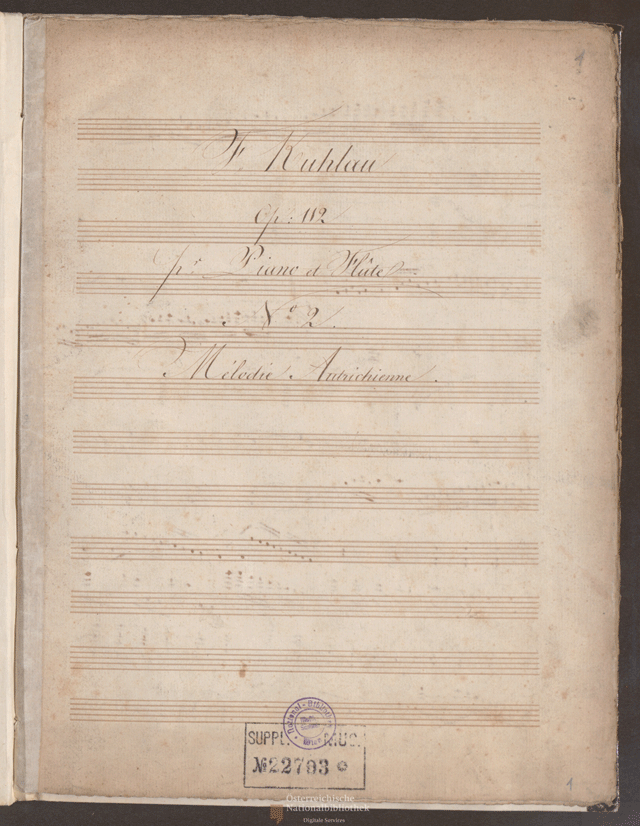 1
F. Kuhlau
Op: 112
pr Piano et Flûte.
No 2.
Mélodie Autrichienne.
National-Bibliothek
Wien
SUPPL. MUS.
No 22793
1
Österreichische
Nationalbibliothek
Digitale Services